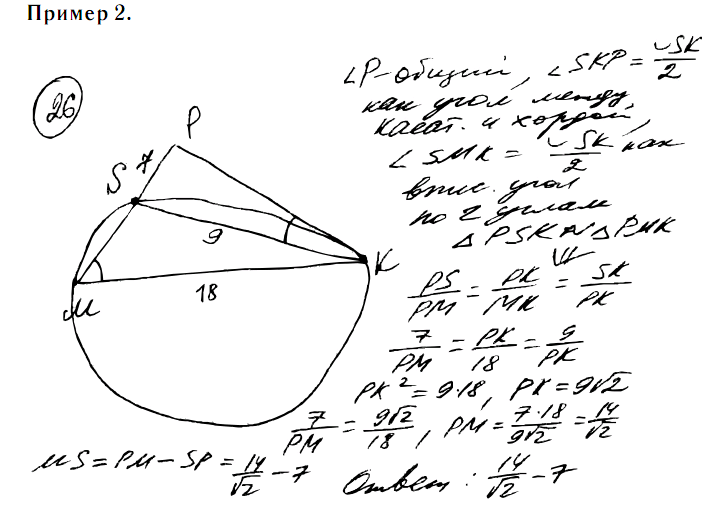 Пример 2.
26
P
S
7
9
K
M
18
∠P-общий, ∠SKP = ◡SK/2
как угол между
касат. и хордой,
∠SMK = ◡SK/2 как
впис. угол
по 2 углам
△PSK ∾ △PMK
⇓
PS/PM = PK/MK = SK/PK
7/PM = PK/18 = 9/PK
PK² = 9·18, PK = 9√2
7/PM = 9√2/18, PM = 7·18/9√2 = 14/√2
MS = PM − SP = 14/√2 − 7
Ответ: 14/√2 − 7